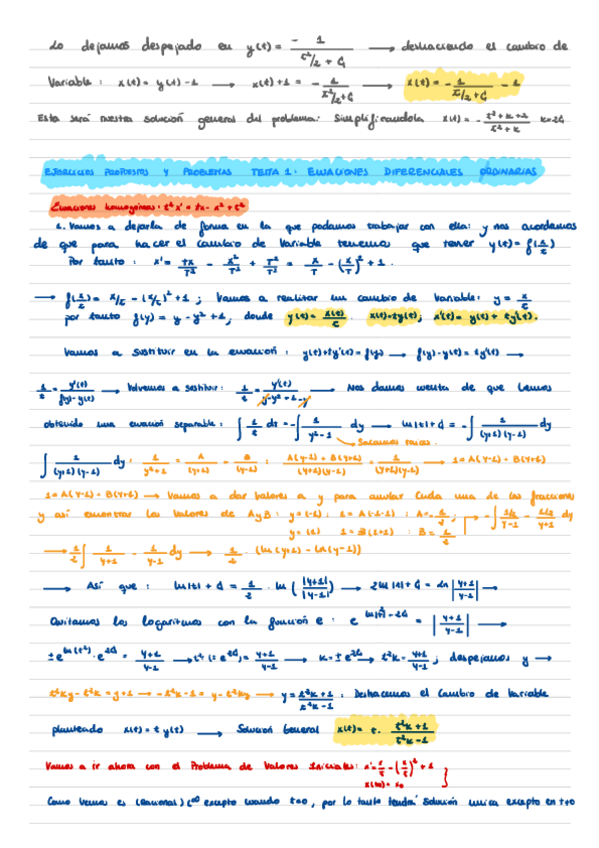 Lo dejamos despejado en y(t) = - 1 / (t²/2 + C₁) → deshaciendo el cambio de
Variable : x(t) = y(t) - 1 → x(t) + 1 = - 1 / (t²/2 + C₁) → x(t) = - 1 / (t²/2 + C₁) - 1
Esta será nuestra solución general del problema: Simplificandola x(t) = - (t² + k + 2) / (t² + k) k = 2C₁
EJERCICIOS PROPUESTOS Y PROBLEMAS TEMA 1: ECUACIONES DIFERENCIALES ORDINARIAS
Ecuaciones homogéneas: t² x' = tx - x² + t²
1. Vamos a dejarla de forma en la que podamos trabajar con ella: y nos acordamos
de que para hacer el cambio de Variable tenemos que tener y(t) = f(x/t)
Por tanto : x' = tx/t² - x²/t² + t²/t² = x/t - (x/t)² + 1 .
→ f(x/t) = x/t - (x/t)² + 1 ; Vamos a realizar un cambio de Variable: y = x/t
por tanto f(y) = y - y² + 1, donde y(t) = x(t)/t . x(t) = ty(t); x'(t) = y(t) + ty'(t).
Vamos a sustituir en la ecuación : y(t) + ty'(t) = f(y) → f(y) - y(t) = ty'(t) →
1/t = y'(t) / (f(y) - y(t)) → Volvemos a sustituir: 1/t = y'(t) / (y - y² + 1 - y) → Nos damos cuenta de que hemos
obtenido una ecuación separable: ∫ 1/t dt = - ∫ 1/(y² - 1) dy → ln|t| + C₁ = - ∫ 1/((y+1)(y-1)) dy
→ Sacamos raíces.
∫ 1/((y+1)(y-1)) dy : 1/(y²+1) = A/(y+1) = B/(y-1) : (A(y-1) + B(y+1))/((y+1)(y-1)) = 1/((y+1)(y-1)) → 1 = A(y-1) + B(y+1)
1 = A(y-1) + B(y+1) → Vamos a dar valores a y para anular cada una de las fracciones
y así encontrar los valores de A y B : y = (-1) ; 1 = A(-1-1) : A = - 1/2 ; → - ∫ (1/2)/(y-1) - (1/2)/(y+1) dy
y = (1) 1 = B(1+1) : B = 1/2
→ 1/2 ∫ 1/(y+1) - 1/(y-1) dy → 1/2 · (ln(y+1) - ln(y-1))
→ Así que : ln|t| + C₁ = 1/2 · ln (|y+1|/|y-1|) → 2ln|t| + C₁ = ln |(y+1)/(y-1)| →
Quitamos los logaritmos con la función e : e^(ln|t|² + 2C₁) = |(y+1)/(y-1)| →
± e^(ln(t²)) · e^(2C₁) = (y+1)/(y-1) → t² (± e^(2C₁)) = (y+1)/(y-1) → k = ± e^(2C₁) → t²k = (y+1)/(y-1) ; despejamos y →
t²ky - t²k = y + 1 → - t²k - 1 = y - t²ky → y = (t²k + 1)/(t²k - 1) : Deshacemos el Cambio de Variable
planteado x(t) = t y(t) → Solución General x(t) = t · (t²k + 1)/(t²k - 1)
Vamos a ir ahora con el Problema de Valores Iniciales: x' = x/t - (x/t)² + 1
x(t₀) = x₀ }
Como vemos es (Racional) C^∞ excepto cuando t=0, por lo tanto tendrá solución única excepto en t=0